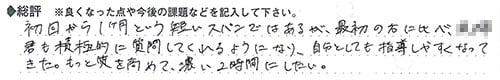 ◆総評 ※良くなった点や今後の課題などを記入して下さい。
初回から1ヶ月という短いスパンではあるが、最初の方に比べ、
君も積極的に質問してくれるようになり、自分としても指導しやすくなって
きた。もっと質を高めて、濃い2時間にしたい。